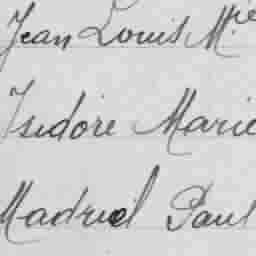 Jean Louis M.ie
Isidore Marie
Madriel Paul